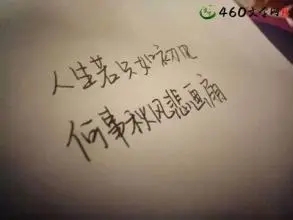 460
人生若只如初见
何事秋风悲画扇